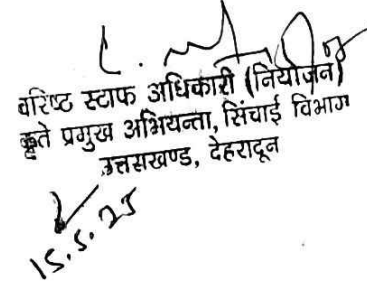 वरिष्ठ स्टाफ अधिकारी (नियोजन)
कृते प्रमुख अभियन्ता, सिंचाई विभाग
उत्तराखण्ड, देहरादून
15.5.25